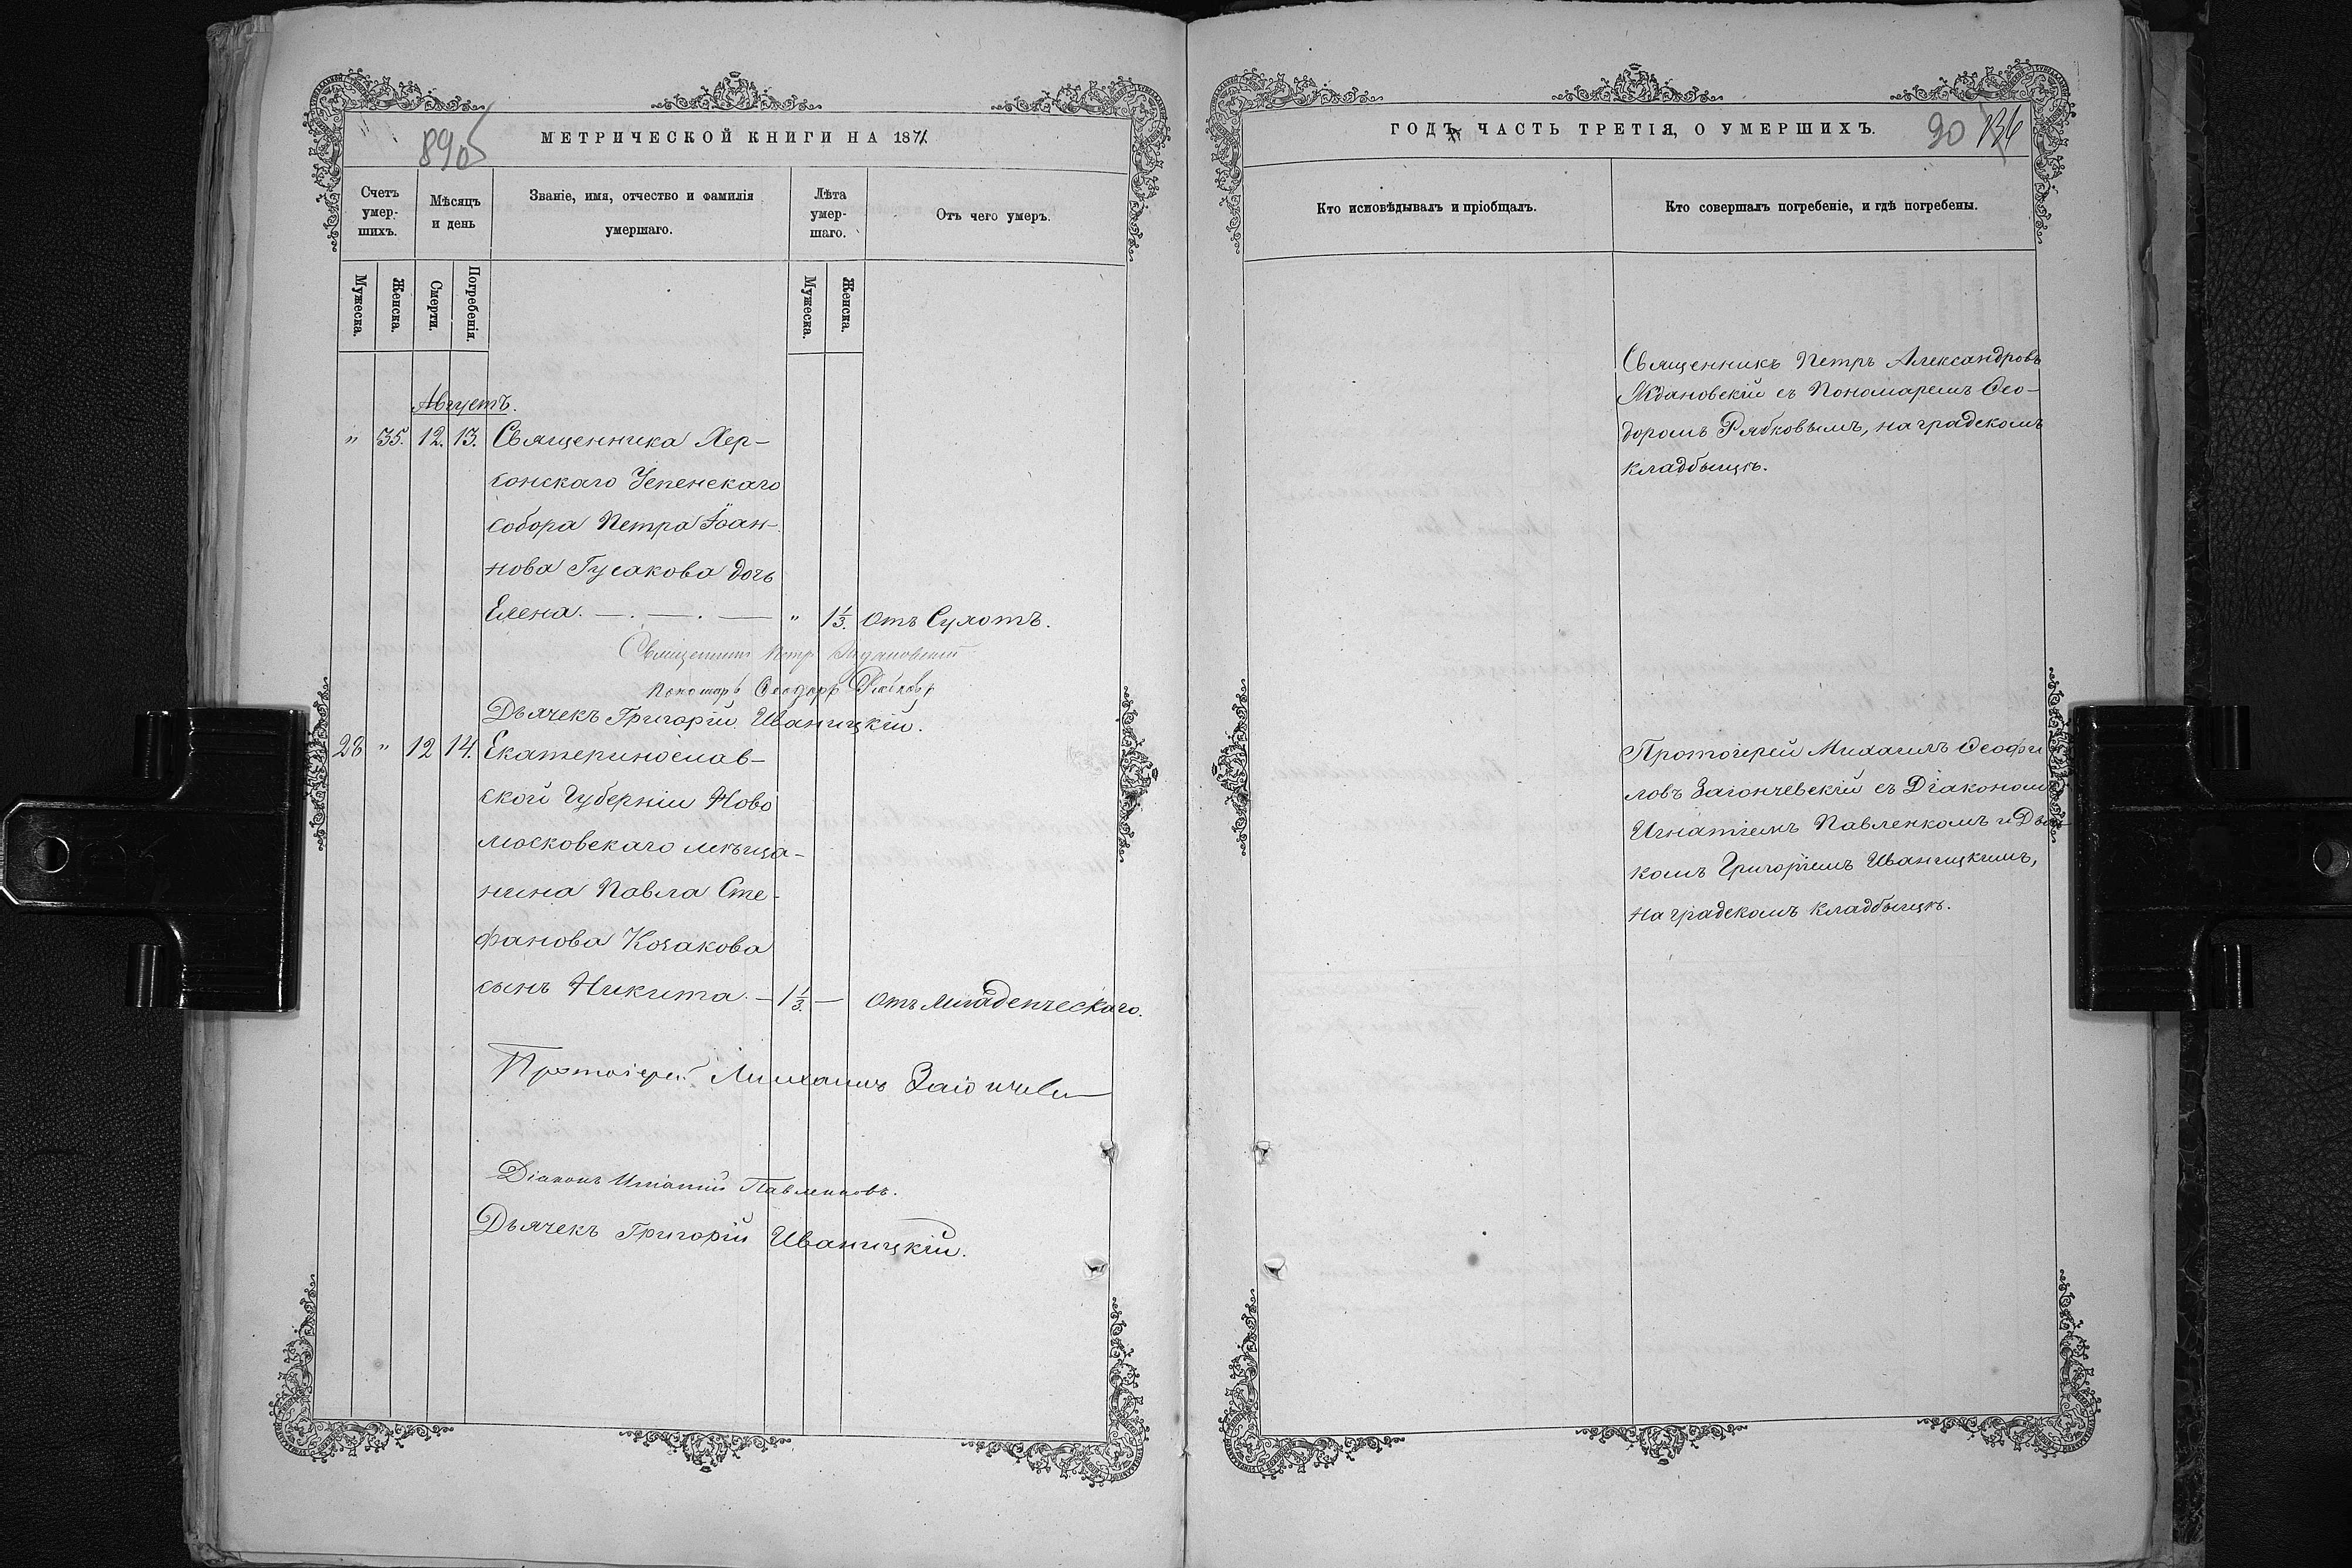 89об
МЕТРИЧЕСКОЙ КНИГИ НА 1871.
Счетъ умер-шихъ.
Мѣсяцъ и день
Званіе, имя, отчество и фамилія умершаго.
Лѣта умер-шаго.
Отъ чего умеръ.
Мужеска.
Женска.
Смерти.
Погребенія.
Мужеска.
Женска.
Августъ.
" 35. 12. 13. Священника Хер-
сонскаго Успенскаго
собора Петра Іоан-
нова Гусакова дочь
Елена. — . — . — " 1 1/3. Отъ Сухотъ.
Священникъ Петръ Ждановскій
Пономарь Ѳеодоръ Рябковъ
Дьячекъ Григорій Иваницкій.
28 " 12 14. Екатеринослав-
ской Губерніи Ново
московскаго мѣща-
нина Павла Сте-
фанова Козакова
сынъ Никита. — 1 1/3. — Отъ младенческаго.
Протоіерей Михаилъ
Діаконъ Игнатій Павленковъ.
Дьячекъ Григорій Иваницкій.
ГОДЪ, ЧАСТЬ ТРЕТІЯ, О УМЕРШИХЪ.
90 136
Кто исповѣдывалъ и пріобщалъ.
Кто совершалъ погребеніе, и гдѣ погребены.
Священникъ Петръ Александровъ
Ждановскій съ Пономаремъ Ѳео-
доромъ Рябковымъ, на градскомъ
кладбищѣ.
Протоіерей Михаилъ Ѳеофи
ловъ Загончевскій съ Діакономъ
Игнатіемъ Павленкомъ и Дьяч
комъ Григоріемъ Иваницкимъ,
на градскомъ кладбищѣ.